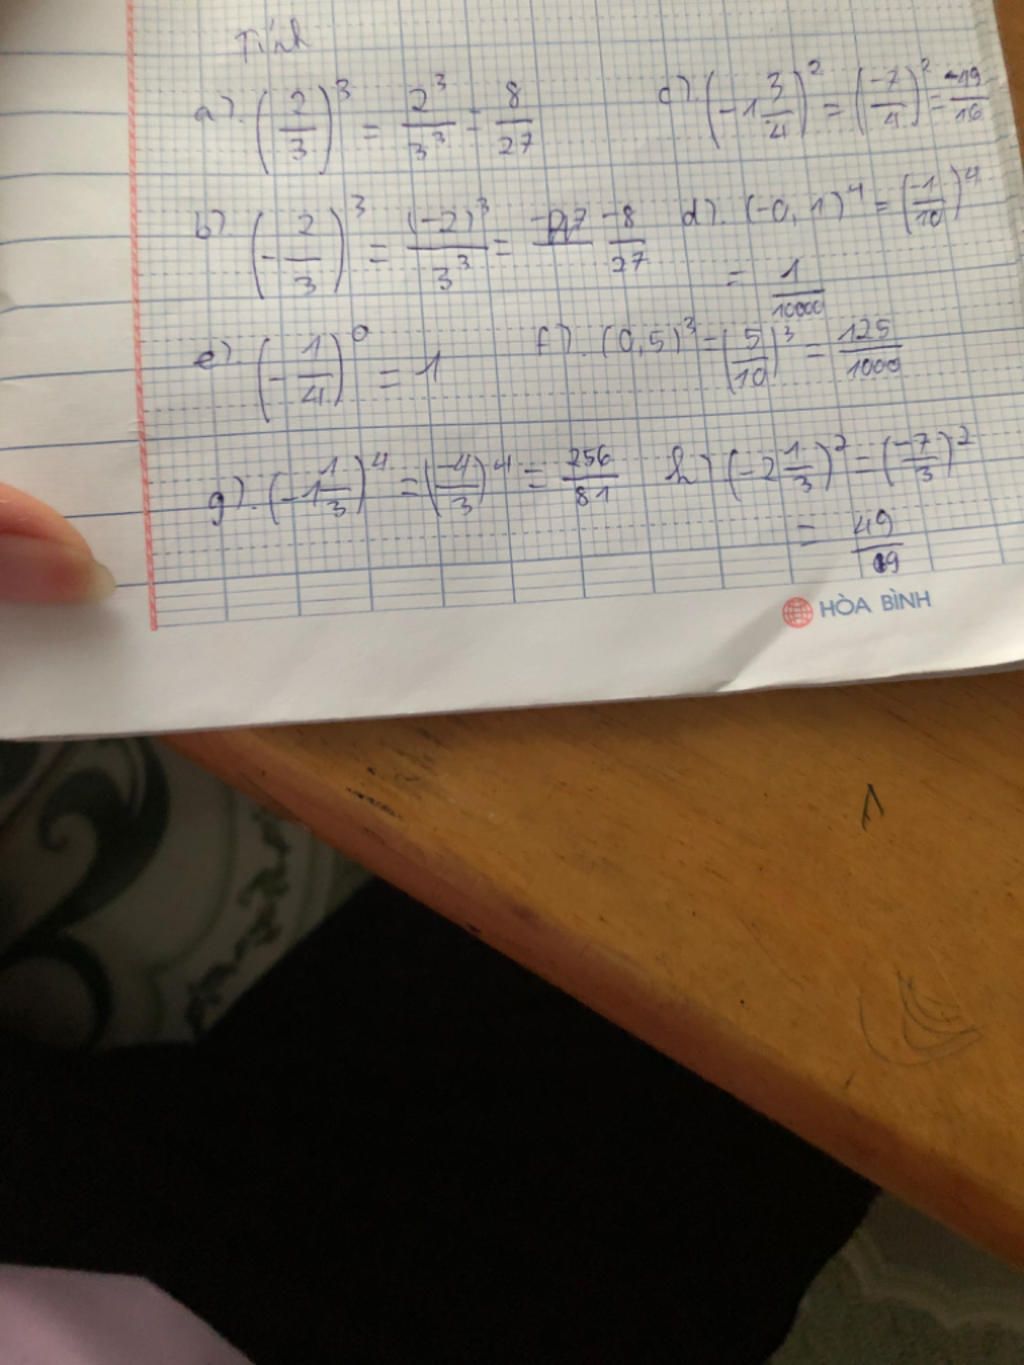 Tính
a). (2/3)^3 = 2^3/3^3 = 8/27
c). (-1 3/4)^2 = (-7/4)^2 = -49/16
b). (-2/3)^3 = (-2)^3/3^3 = -8/27
d). (-0,1)^4 = (-1/10)^4
= 1/10000
e). (-1/4)^0 = 1
f). (0,5)^3 = (5/10)^3 = 125/1000
g). (-1 1/3)^4 = (-4/3)^4 = 256/81
h) (-2 1/3)^2 = (-7/3)^2
= 49/9
HÒA BÌNH